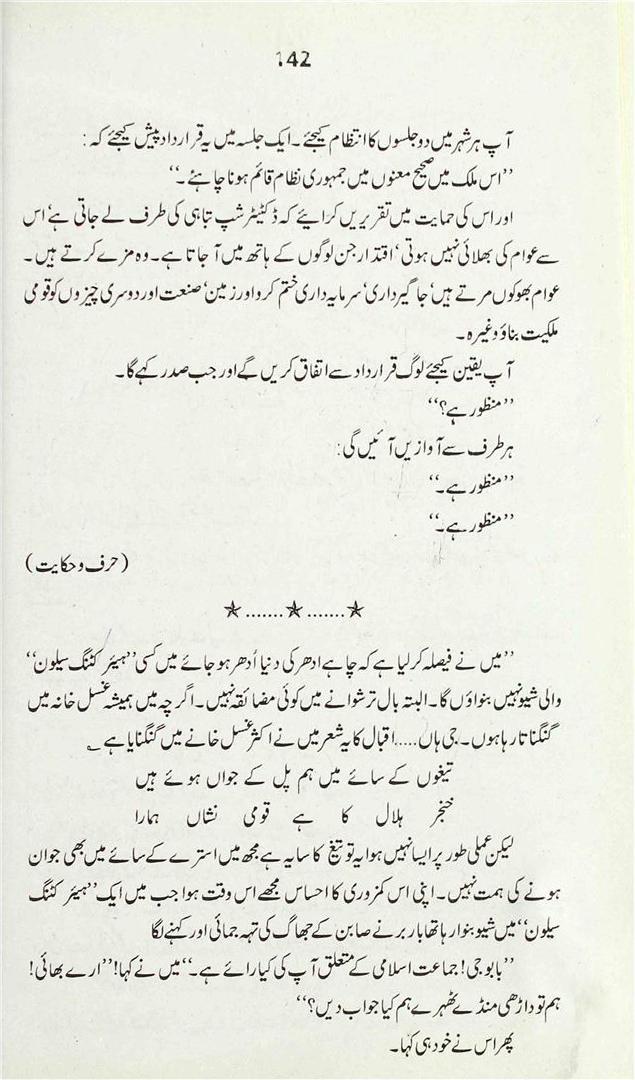 142
آپ ہر شہر میں دو جلسوں کا انتظام کیجئے۔ ایک جلسہ میں یہ قرارداد پیش کیجئے کہ:
’’اس ملک میں صحیح معنوں میں جمہوری نظام قائم ہونا چاہئے۔‘‘
اور اس کی حمایت میں تقریریں کرائیے کہ ڈکٹیٹر شپ تباہی کی طرف لے جاتی ہے‘ اس
سے عوام کی بھلائی نہیں ہوتی‘ اقتدار جن لوگوں کے ہاتھ میں آ جاتا ہے۔ وہ مزے کرتے ہیں۔
عوام بھوکوں مرتے ہیں‘ جاگیرداری‘ سرمایہ داری ختم کرو اور زمین‘ صنعت اور دوسری چیزوں کو قومی
ملکیت بناؤ وغیرہ۔
آپ یقین کیجئے لوگ قرارداد سے اتفاق کریں گے اور جب صدر کہے گا۔
’’منظور ہے؟‘‘
ہر طرف سے آوازیں آئیں گی:
’’منظور ہے۔‘‘
’’منظور ہے۔‘‘
(حرف و حکایت)
★.......★.......★
’’میں نے فیصلہ کر لیا ہے کہ چاہے ادھر کی دنیا اُدھر ہو جائے میں کسی ’’ہیئر کٹنگ سیلون‘‘
والی شیو نہیں بنواؤں گا۔ البتہ بال ترشوانے میں کوئی مضائقہ نہیں۔ اگرچہ میں ہمیشہ غسل خانہ میں
گنگناتا رہا ہوں۔ جی ہاں..... اقبال کا یہ شعر میں نے اکثر غسل خانے میں گنگنایا ہے ؎
تیغوں کے سائے میں ہم پل کے جواں ہوئے ہیں
خنجر ہلال کا ہے قومی نشاں ہمارا
لیکن عملی طور پر ایسا نہیں ہوا یہ تو تیغ کا سایہ ہے مجھ میں استرے کے سائے میں بھی جوان
ہونے کی ہمت نہیں۔ اپنی اس کمزوری کا احساس مجھے اس وقت ہوا جب میں ایک ’’ہیئر کٹنگ
سیلون‘‘ میں شیو بنوا رہا تھا باربر نے صابن کے جھاگ کی تہہ جمائی اور کہنے لگا
’’بابو جی! جماعت اسلامی کے متعلق آپ کی کیا رائے ہے۔‘‘ میں نے کہا! ’’ارے بھائی!
ہم تو داڑھی منڈے ٹھہرے ہم کیا جواب دیں؟‘‘
پھر اس نے خود ہی کہا۔